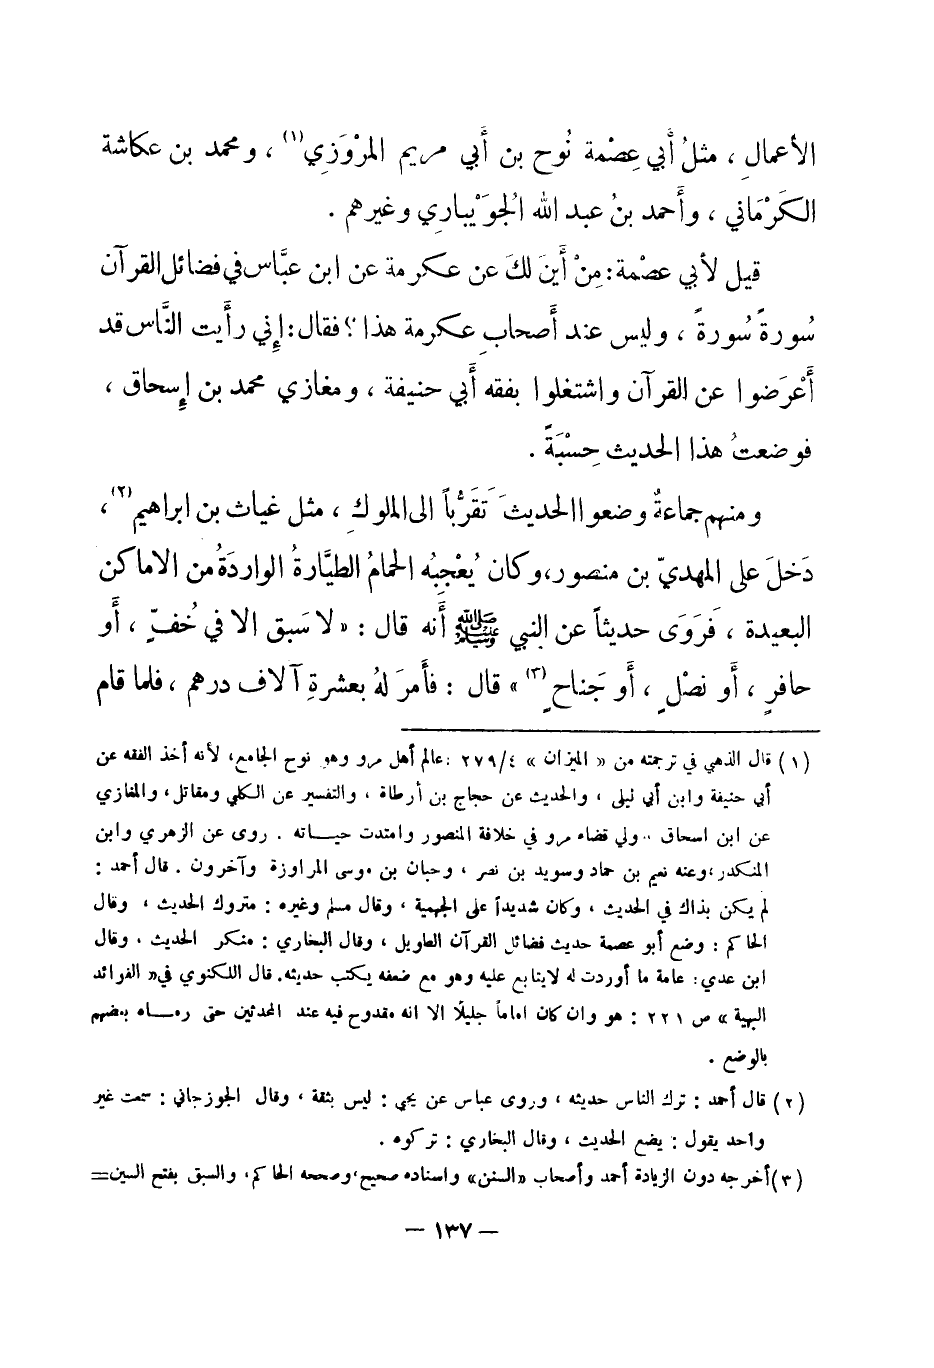 الأعمالِ ، مثلُ أبي عِصْمة نُوح بن أبي مريم المرْوَزِي(١) ، ومحمد بن عكاشة
الكَرْمَاني ، وأَحمد بنُ عبد الله الجُوَيْباري وغيرهم .
قيل لأبي عصْمة: مِنْ أَينَ لكَ عن عكرمة عن ابن عبَّاس في فضائل القرآن
سُورةً سُورةً ، وليس عند أَصحابِ عكرمة هذا ؟ فقال: إِني رأَيت النَّاس قد
أَعْرَضوا عن القرآن واشتغلوا بفقه أَبي حنيفة ، ومغازي محمد بن إِسحاق ،
فوضعتُ هذا الحديث حِسْبَةً .
ومنهم جماعةٌ وضعوا الحديثَ تَقَرُّباً الى الملوكِ ، مثل غياث بن ابراهيم(٢) ،
دَخلَ على المهديّ بن منصور، وكان يُعْجِبُه الحمامُ الطيَّارةُ الواردَةُ من الاماكن
البعيدة ، فَروَى حديثاً عن النبي ﷺ أَنه قال : « لا سَبق الا في خُفٍّ ، أَو
حافرٍ ، أَو نصْلٍ ، أَو جَناحٍ(٣) » قال : فأَمرَ لهُ بعشرةِ آلاف درهم ، فلما قام
(١) قال الذهبي في ترجمته من « الميزان » ٢٧٩/٤ : عالم أهل مرو وهو نوح الجامع، لأنه أخذ الفقه عن
أبي حنيفة وابن أبي ليلى ، والحديث عن حجاج بن أرطاة ، والتفسير عن الكلبي ومقاتل، والمغازي
عن ابن اسحاق .. ولي قضاء مرو في خلافة المنصور وامتدت حياته . روى عن الزهري وابن
المنكدر، وعنه نعيم بن حماد وسويد بن نصر ، وحبان بن موسى المراوزة وآخرون . قال أحمد :
لم يكن بذاك في الحديث ، وكان شديداً على الجهمية ، وقال مسلم وغيره : متروك الحديث ، وقال
الحاكم : وضع أبو عصمة حديث فضائل القرآن الطويل ، وقال البخاري : منكر الحديث . وقال
ابن عدي: عامة ما أوردت له لايتابع عليه وهو مع ضعفه يكتب حديثه. قال اللكنوي في« الفوائد
البهية » ص ٢٢١ : هو وان كان اماماً جليلًا الا انه مقدوح فيه عند المحدثين حتى رماه بعضهم
بالوضع .
(٢) قال أحمد : ترك الناس حديثه ، وروى عباس عن يحيى : ليس بثقة ، وقال الجوزجاني : سمعت غير
واحد يقول : يضع الحديث ، وقال البخاري : تركوه .
(٣) أخرجه دون الزيادة أحمد وأصحاب «السنن» واسناده صحيح، وصححه الحاكم، والسبق بفتح السين=
— ١٣٧ —